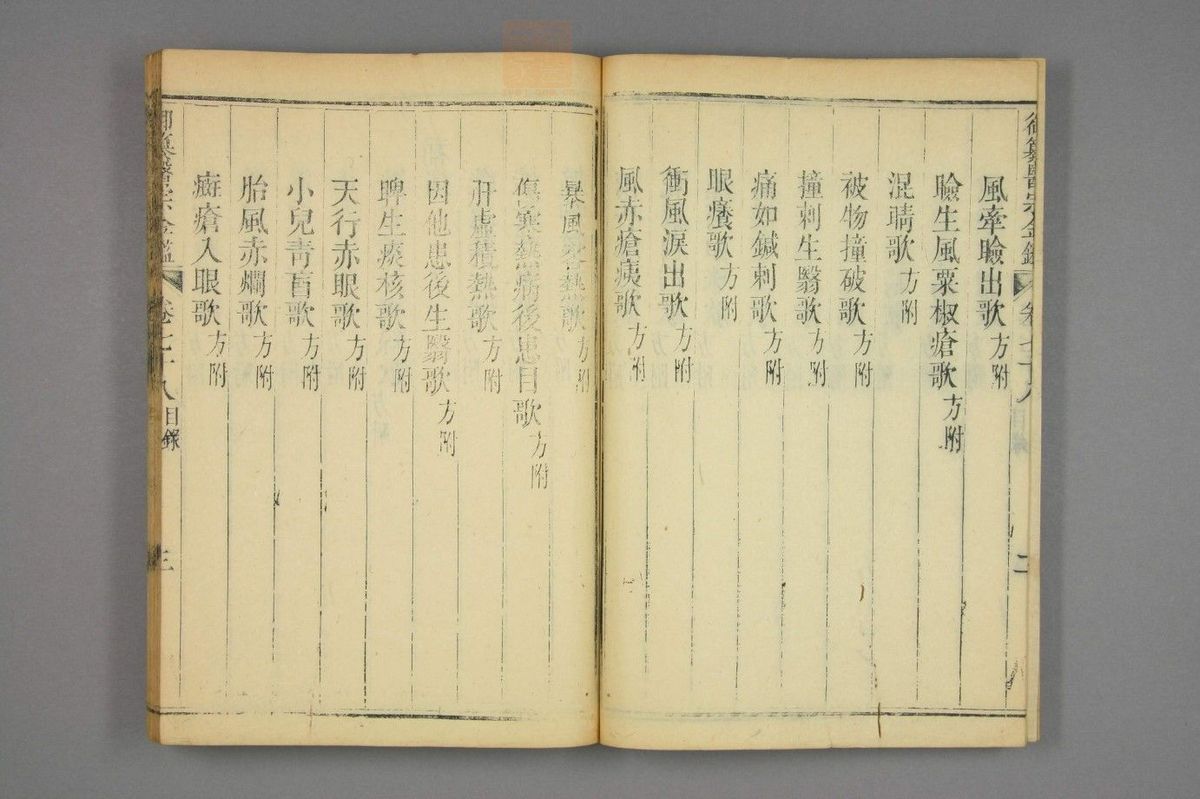 御纂醫宗金鑑 卷七十八 目錄 二
風牽瞼出歌 方附
瞼生風粟椒瘡歌 方附
混睛歌 方附
被物撞破歌 方附
撞刺生翳歌 方附
痛如鍼刺歌 方附
眼癢歌 方附
衝風淚出歌 方附
風赤瘡痍歌 方附
暴風客熱歌 方附
傷寒熱病後患目歌 方附
肝虛積熱歌 方附
因他患後生翳歌 方附
睥生痰核歌 方附
天行赤眼歌 方附
小兒青盲歌 方附
胎風赤爛歌 方附
痘瘡入眼歌 方附
御纂醫宗金鑑 卷七十八 目錄 三